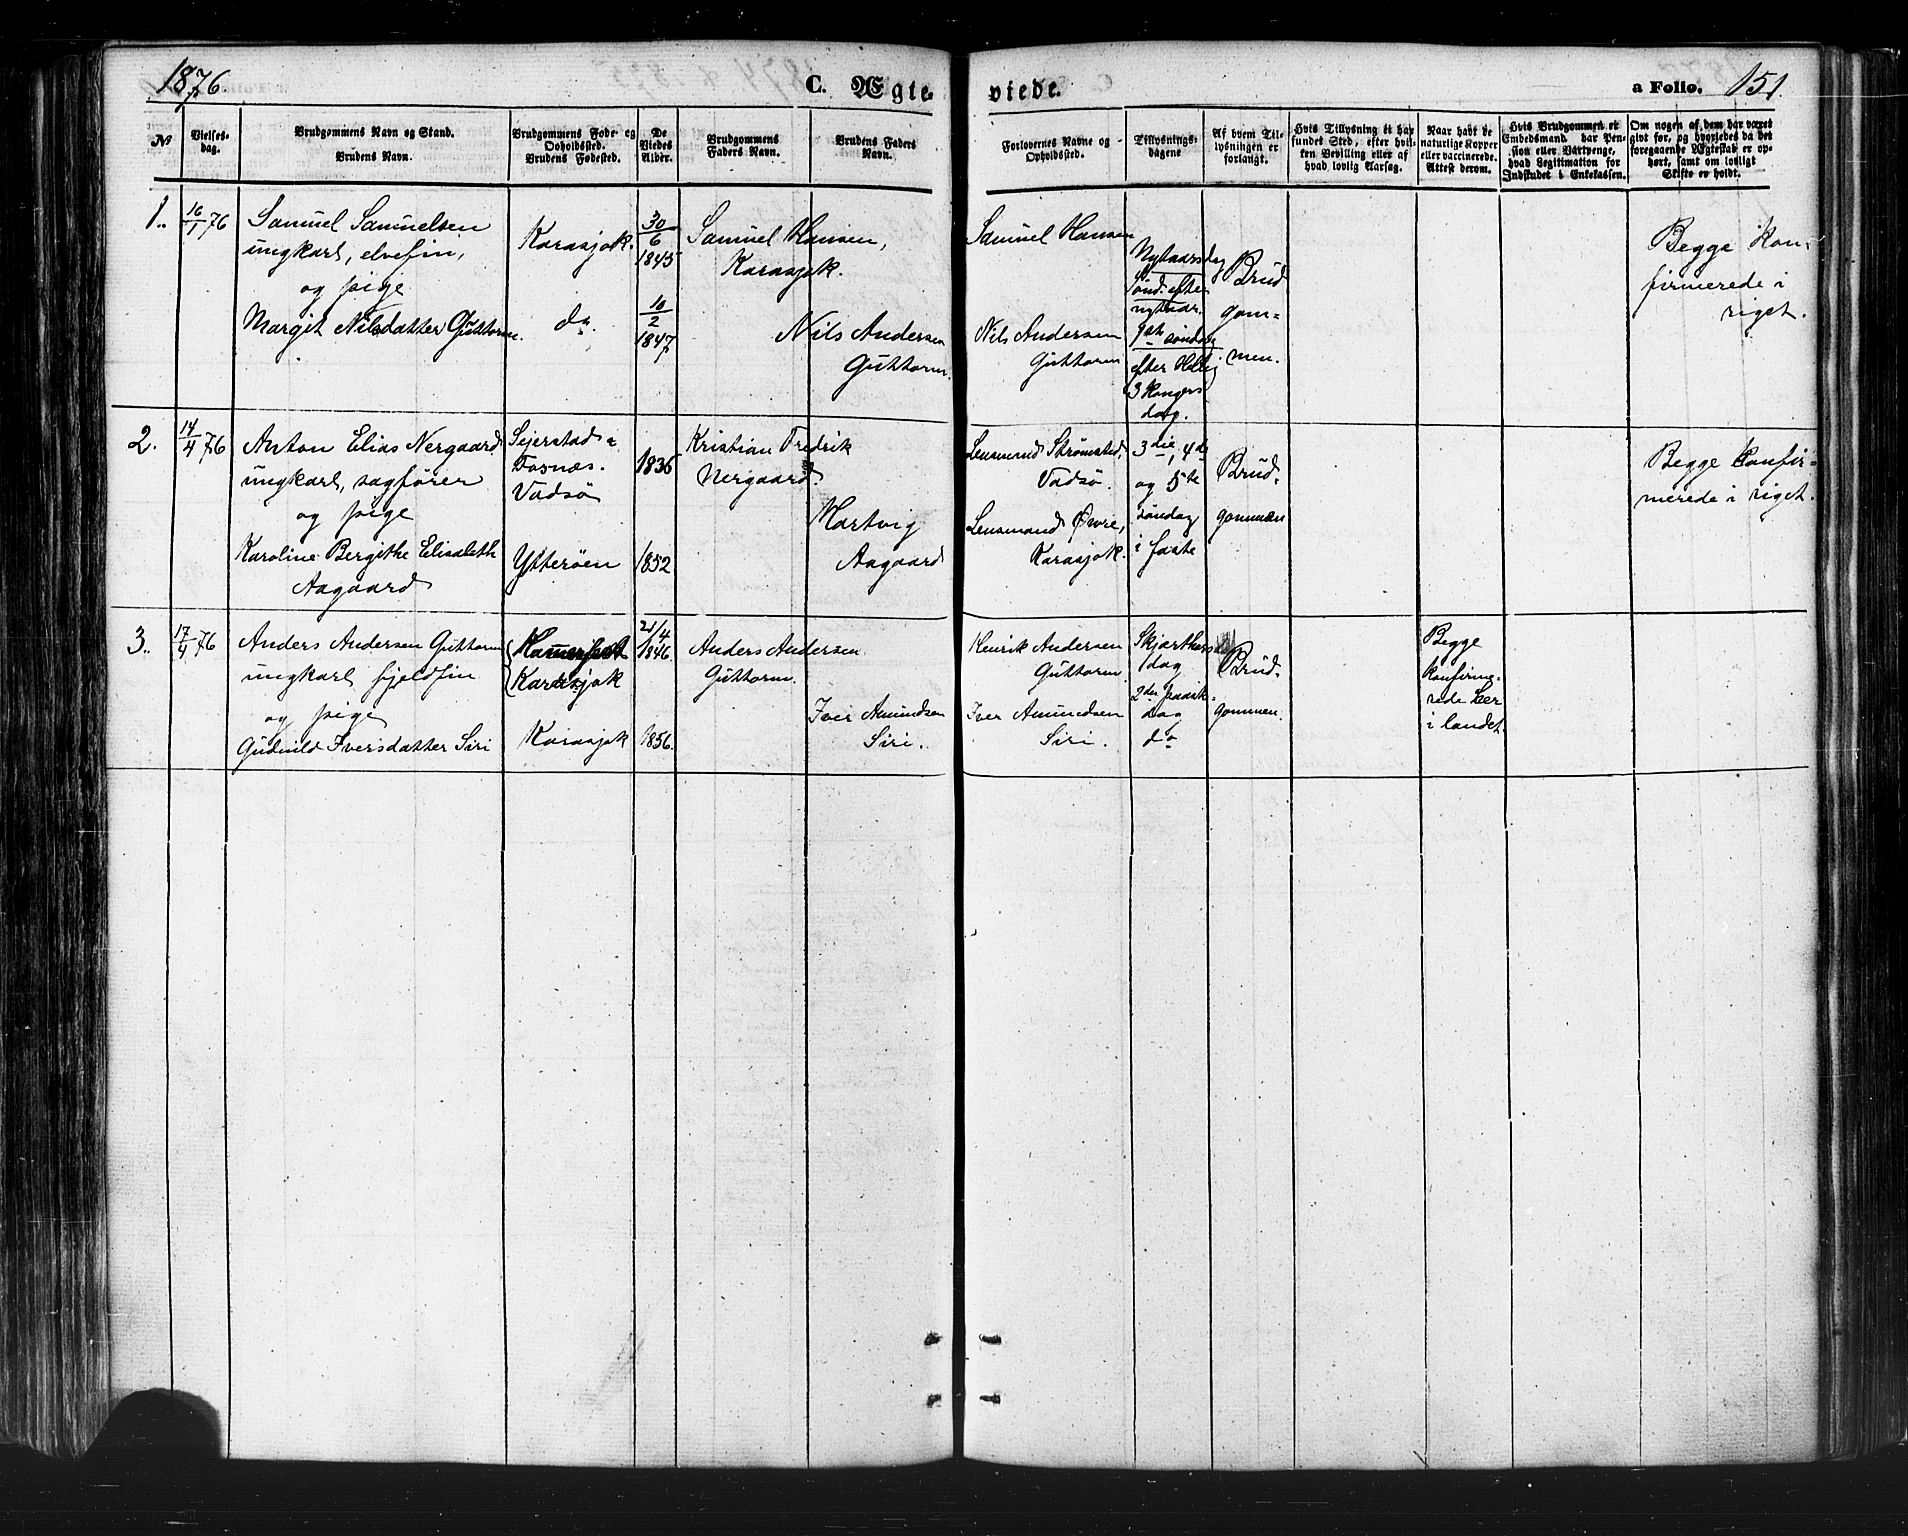 1876
C. Ægte-
viede.
a Folio. 151.
№
Vielses-
dag.
Brudgommens Navn og Stand.
Brudens Navn.
Brudgommens Føde- og
Opholdssted.
Brudens Fødested.
De
Viedes
Alder.
Brudgommens
Faders Navn.
Brudens Faders
Navn.
Forlovernes Navne og
Opholdssted.
Tillysnings-
dagene
Af hvem Til-
lysningen er
forlangt.
Hvis Tillysning ei har
fundet Sted, efter hvil-
ken Bevilling eller af
hvad lovlig Aarsag.
Naar havt de
naturlige Kopper
eller vaccinerede.
Attest derom.
Hvis Brudgommen er
Embedsmand har Pen-
sion eller Vartpenge,
hvad Legitimation for
Indskudet i Enkekassen.
Om nogen af dem har været
givt før, og hvorledes da det
foregaaende Ægteskab er op-
hørt, samt om lovligt
Skifte er holdt.
1..
16/1 76
Samuel Samuelsen
ungkarl, elvefin,
og pige
Margit Nilsdatter Guttorm.
Karasjok.
do.
30/6
1845
10/2
1847
Samuel Hansen,
Karasjok.
Nils Andersen
Guttorm.
Samuel Hansen
Nils Andersen
Guttorm
Nytaarsdag
Sønd. efter
nytaar.
1ste søndag
efter Hellig
3 Kongers
dag.
Brud
gom=
men.
Begge kon=
firmerede i
riget.
2.
14/4 76
Anton Elias Nergaard
ungkarl, sagfører
og pige
Karoline Bergithe Elisabeth
Aagaard
Sejerstad
Fosnæs.
Vadsø
Ytterøen
1836
1852
Kristian Fredrik
Nergaard.
Hartvig
Aagaard
Lensmand Strømsted,
Vadsø.
Lensmand Øvre,
Karasjok.
3die, 4de
og 5te
søndag
i faste
Brud.
gommen
Begge konfir=
merede i riget.
3..
17/4 76
Anders Andersen Guttorm
ungkarl fjeldfin
og pige
Gudnild Iversdatter Siri
Karasjok
Karasjok
21/4
1846.
1856.
Anders Andersen
Guttorm.
Iver Amundsen
Siri.
Henrik Andersen
Guttorm.
Iver Amundsen
Siri.
Skjærthors
dag
2den paask-
dag
do
Brud.
gommen.
Begge
konfirme=
rede her
i landet.